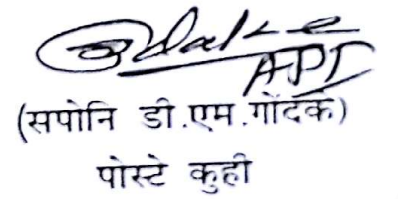 API
(सपोनि डी.एम.गोंदके)
पोस्टे कुही